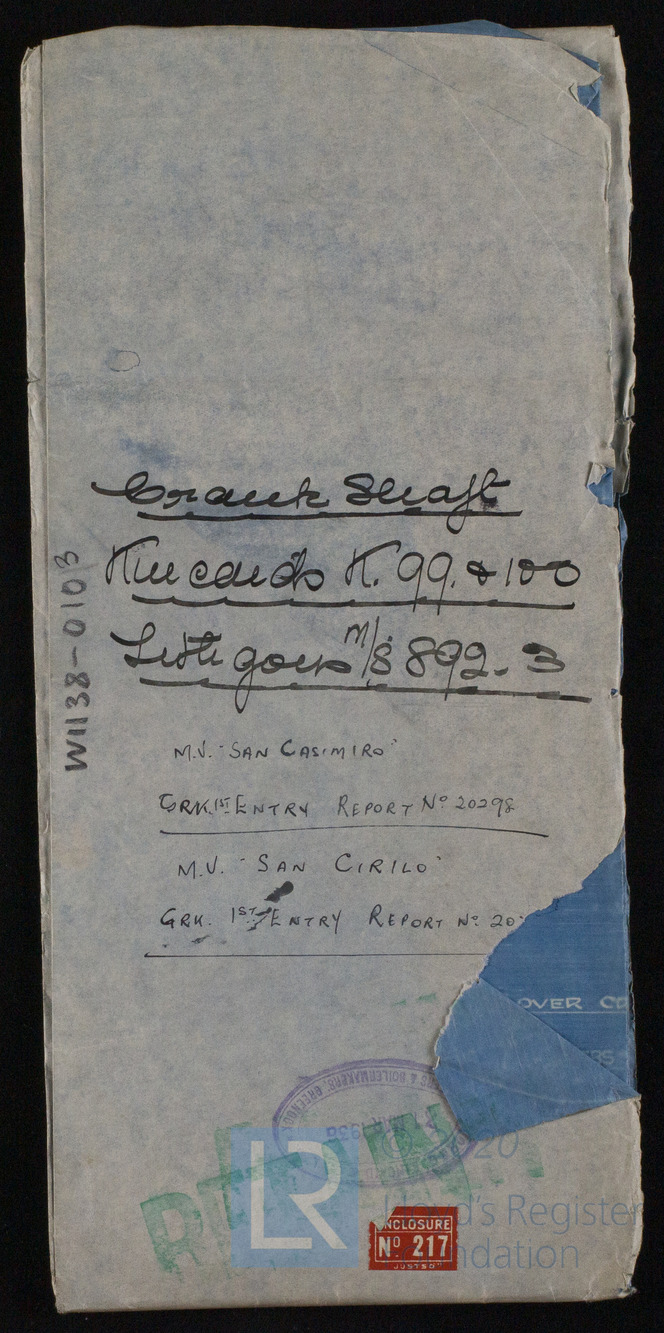 Crank Shaft
Kincaids K. 99. & 100
Lithgows M/S 892-3
W1138-0103
M.V. "SAN CASIMIRO"
GRK. 1ST ENTRY REPORT No 20298
M.V. "SAN CIRILO"
GRK. 1ST ENTRY REPORT No 20
OVER
& BOILERMAKERS, GREENOCK
1936
LR
Lloyd's Register
Foundation
20
ENCLOSURE
No 217
"JUSTSO"